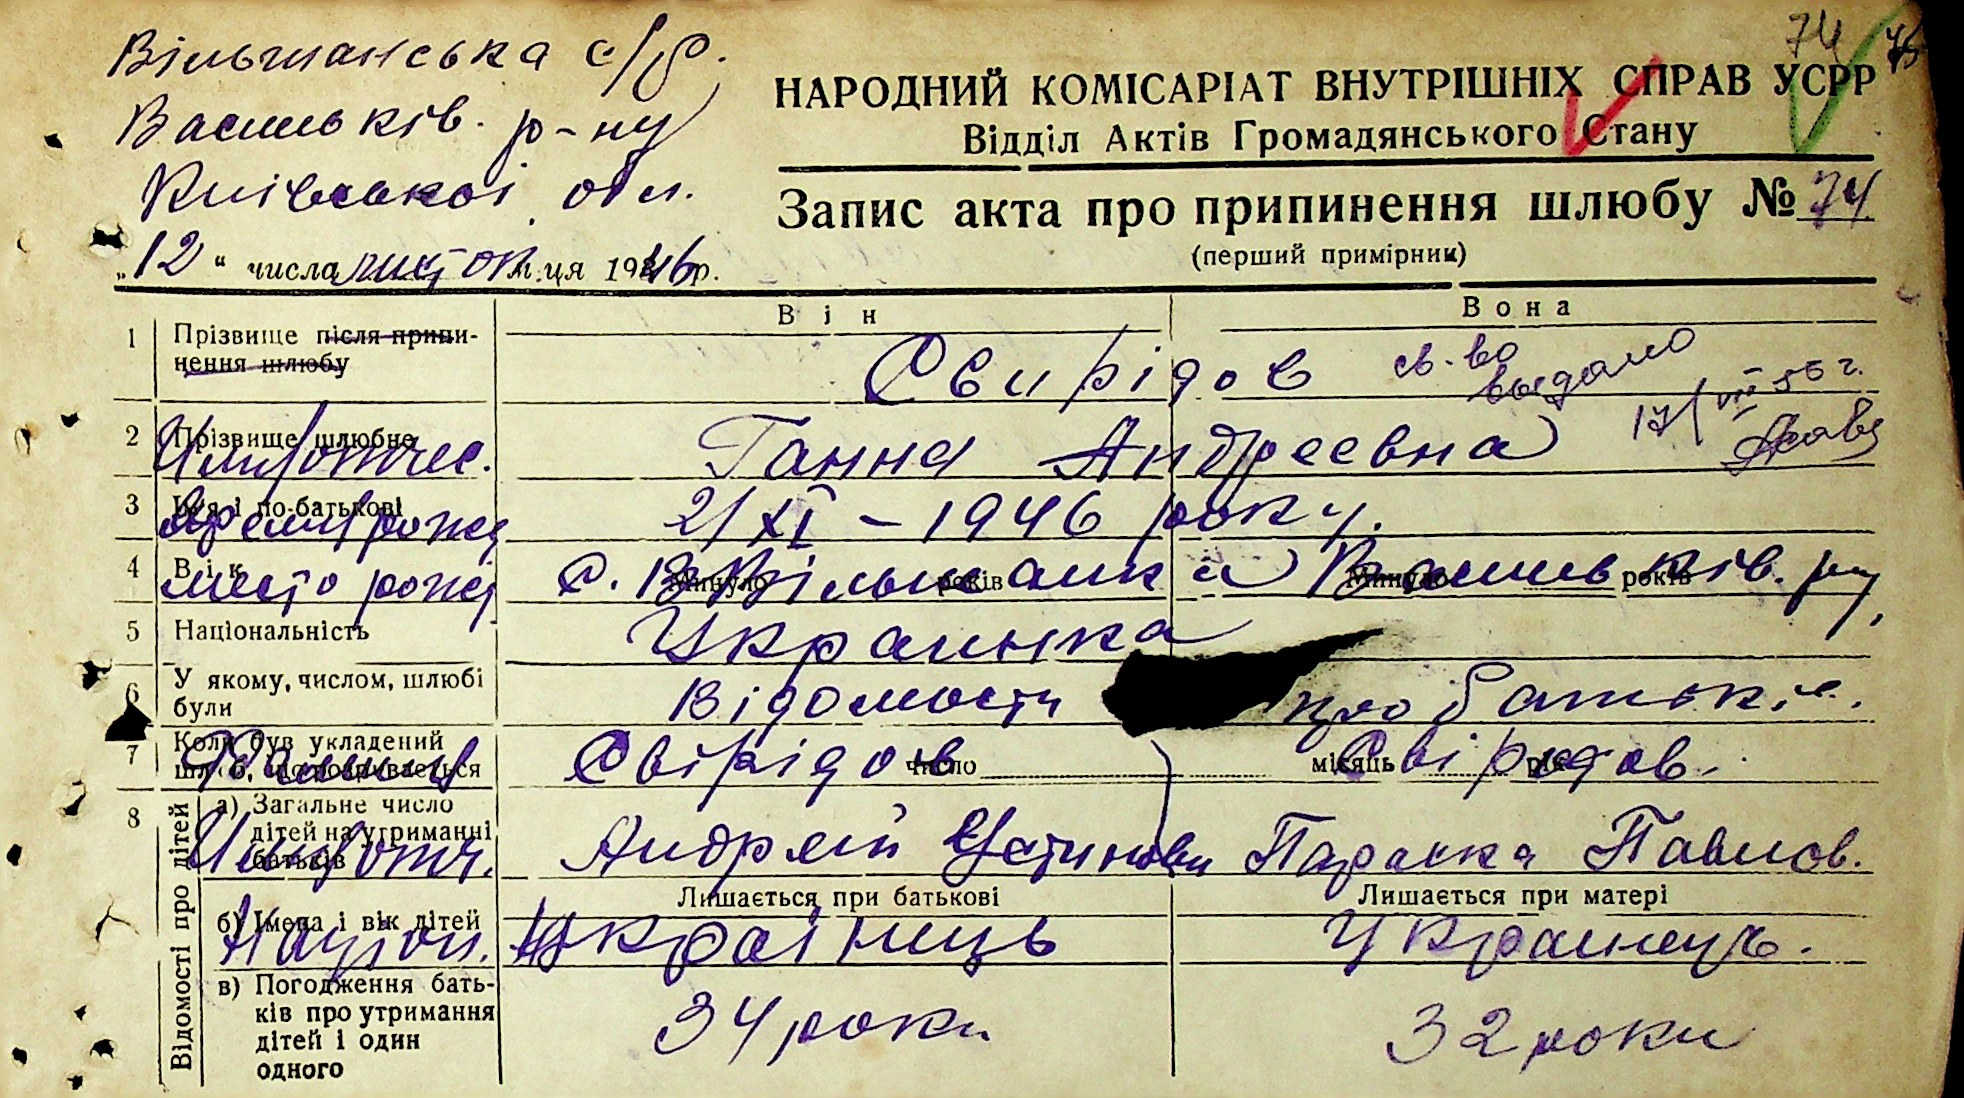 Вільшанська с/р.
Васильків. р-ну
Київської обл.
"12" числа листоп м.ця 1946 р.
74
75
НАРОДНИЙ КОМІСАРІАТ ВНУТРІШНІХ СПРАВ УСРР
Відділ Актів Громадянського Стану
Запис акта про припинення шлюбу № 74
(перший примірник)
Він Вона
1 Прізвище після припи-
нення шлюбу
Свирідов
св-во
выдано
17/VIII 56 г.
2 Прізвище шлюбне
Имя отчес. Ганна Андреевна
3 Ім'я і по-батькові
Время рожд 2/XI - 1946 року.
4 Вік Минуло років Минуло років
место рожд с. Вільшанка Васильків. р-ну
5 Національність Украинка
6 У якому, числом, шлюбі
були
Відомости про батьків.
7 Коли був укладений
шлюб, що розривається
число місяць рік
Фамил Свірідов Свірідов.
8 Відомості про дітей
а) Загальне число
дітей на утриманні
батьків
Имя отч. Андрей Устинови Параска Павлов.
Лишається при батькові Лишається при матері
б) Імена і вік дітей
Націон. Українець Украинець.
в) Погодження бать-
ків про утримання
дітей і один
одного
34 роки 32 роки